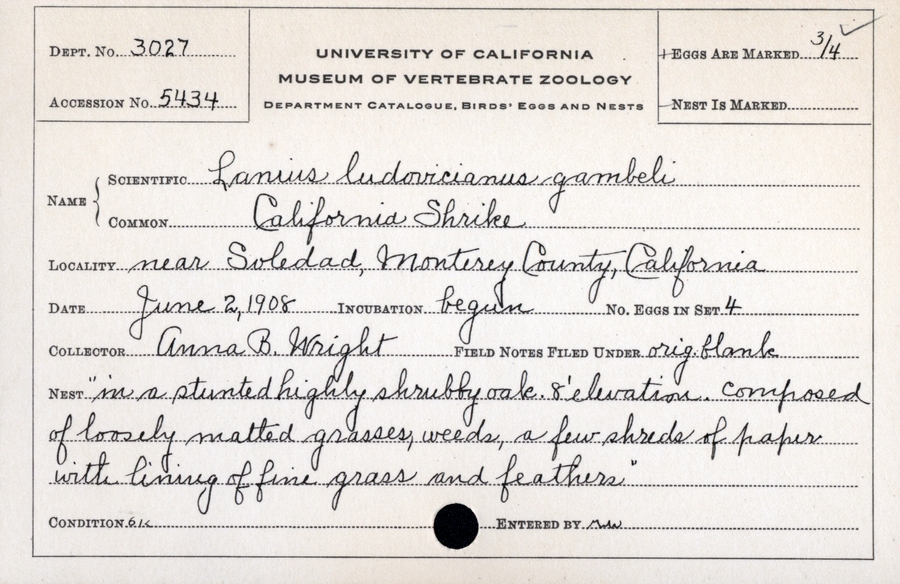 Dept. No. 3027
Accession No. 5434
University of California
Museum of Vertebrate Zoology
Department Catalogue, Birds' Eggs and Nests
Eggs Are Marked 3/4
Nest Is Marked
Name
Scientific Lanius ludovicianus gambeli
Common California Shrike
Locality near Soledad, Monterey County, California
Date June 2, 1908 Incubation begun No. Eggs in Set 4
Collector Anna B. Wright Field Notes Filed Under orig. blank
Nest "in a stunted highly shrubby oak. 8' elevation. composed
of loosely matted grasses, weeds, a few shreds of paper
with lining of fine grass and feathers"
Condition Entered by